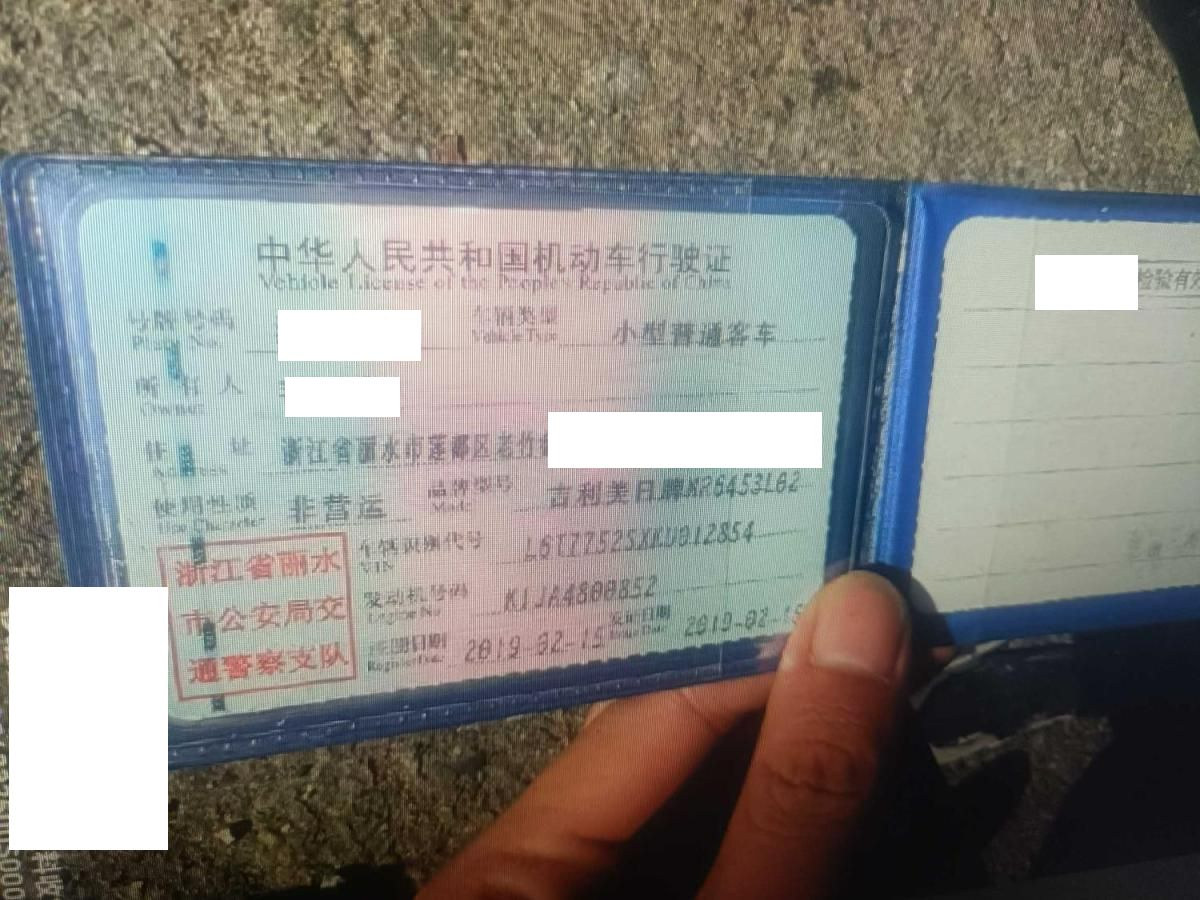 中华人民共和国机动车行驶证
Vehicle License of the People's Republic of China
号牌号码
Plate No.
车辆类型
Vehicle Type
小型普通客车
所有人
Owner
住址
Address
浙江省丽水市莲都区老竹
使用性质
Use Character
非营运
品牌型号
Model
吉利美日牌MR6453L02
车辆识别代号
VIN
发动机号码
Engine No.
注册日期
Register Date
2019-02-15
发证日期
Issue Date
2019-02-15
浙江省丽水
市公安局交
通警察支队
检验有效